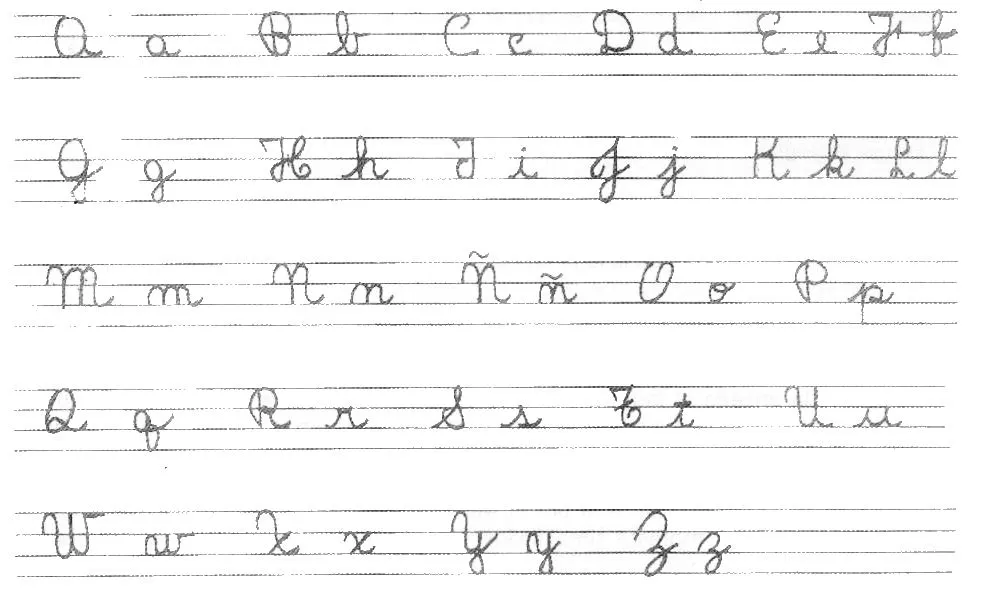 A a B b C c D d E e F f
G g H h I i J j K k L l
M m N n Ñ ñ O o P p
Q q R r S s T t U u
W w X x Y y Z z